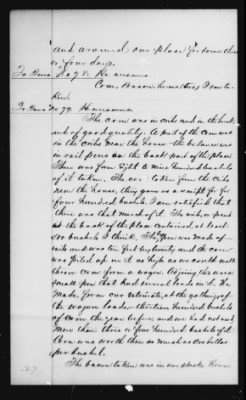 and around our place for some three
or four days.
To Ques. No 78. He answers
Corn, Bacon
To Ques. No 79. He answers
The corn was in cribs and in the husk
and of good quality. A part of the corn was
in the cribs near the house the balance was
in rail pens on the back part of the place
There was from eight to nine hundred bushels
of it taken. The taken from the cribs
near the house, they gave us a receipt for for
four hundred bushels. I am satisfied that
there was that much of it. The
at the back of the place contained at least
bushels I think. The pen was made of
rails and was ten feet by twenty and the corn
was piled up in it as high as we could well
throw corn from a wagon. Adjoining there was a
small pen that had several loads in it. He
made, from our estimate, at the gathering of
the crop one hundred bushels
of corn the year before and we had not used
more than three or four hundred bushels of it
Corn was worth then as much as one dollar
per bushel.
The bacon taken was in our smoke house